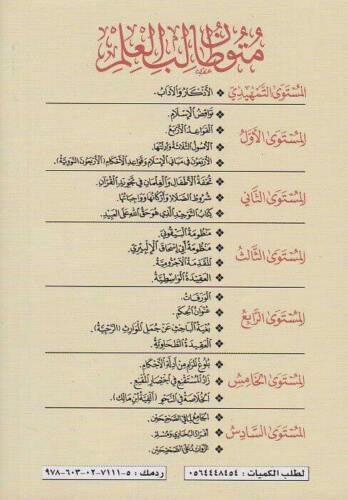 متون طالب العلم
المستوى التمهيدي
الأذكار والآداب.
المستوى الأول
نواقض الإسلام.
القواعد الأربع.
الأصول الثلاثة وأدلتها.
الأربعون في مباني الإسلام وقواعد الأحكام (الأربعون النووية).
المستوى الثاني
تحفة الأطفال والغلمان في تجويد القرآن.
شروط الصلاة وأركانها وواجباتها.
كتاب التوحيد الذي هو حق الله على العبيد.
المستوى الثالث
منظومة البيقوني.
منظومة أبي إسحاق الإلبيري.
المقدمة الآجرومية.
العقيدة الواسطية.
المستوى الرابع
الورقات.
عنوان الحكم.
بغية الباحث عن جمل الموارث (الرحبية).
العقيدة الطحاوية.
المستوى الخامس
بلوغ المرام من أدلة الأحكام.
زاد المستقنع في اختصار المقنع.
الخلاصة في النحو (ألفية ابن مالك).
المستوى السادس
الجامع بين الصحيحين.
أفراد البخاري ومسلم.
الزوائد على الصحيحين.
لطلب الكميات : ٠٥٦٤٤٤٨٤٥٤
ردمك : ٥-٧١١١-٠٢-٦٠٣-٩٧٨